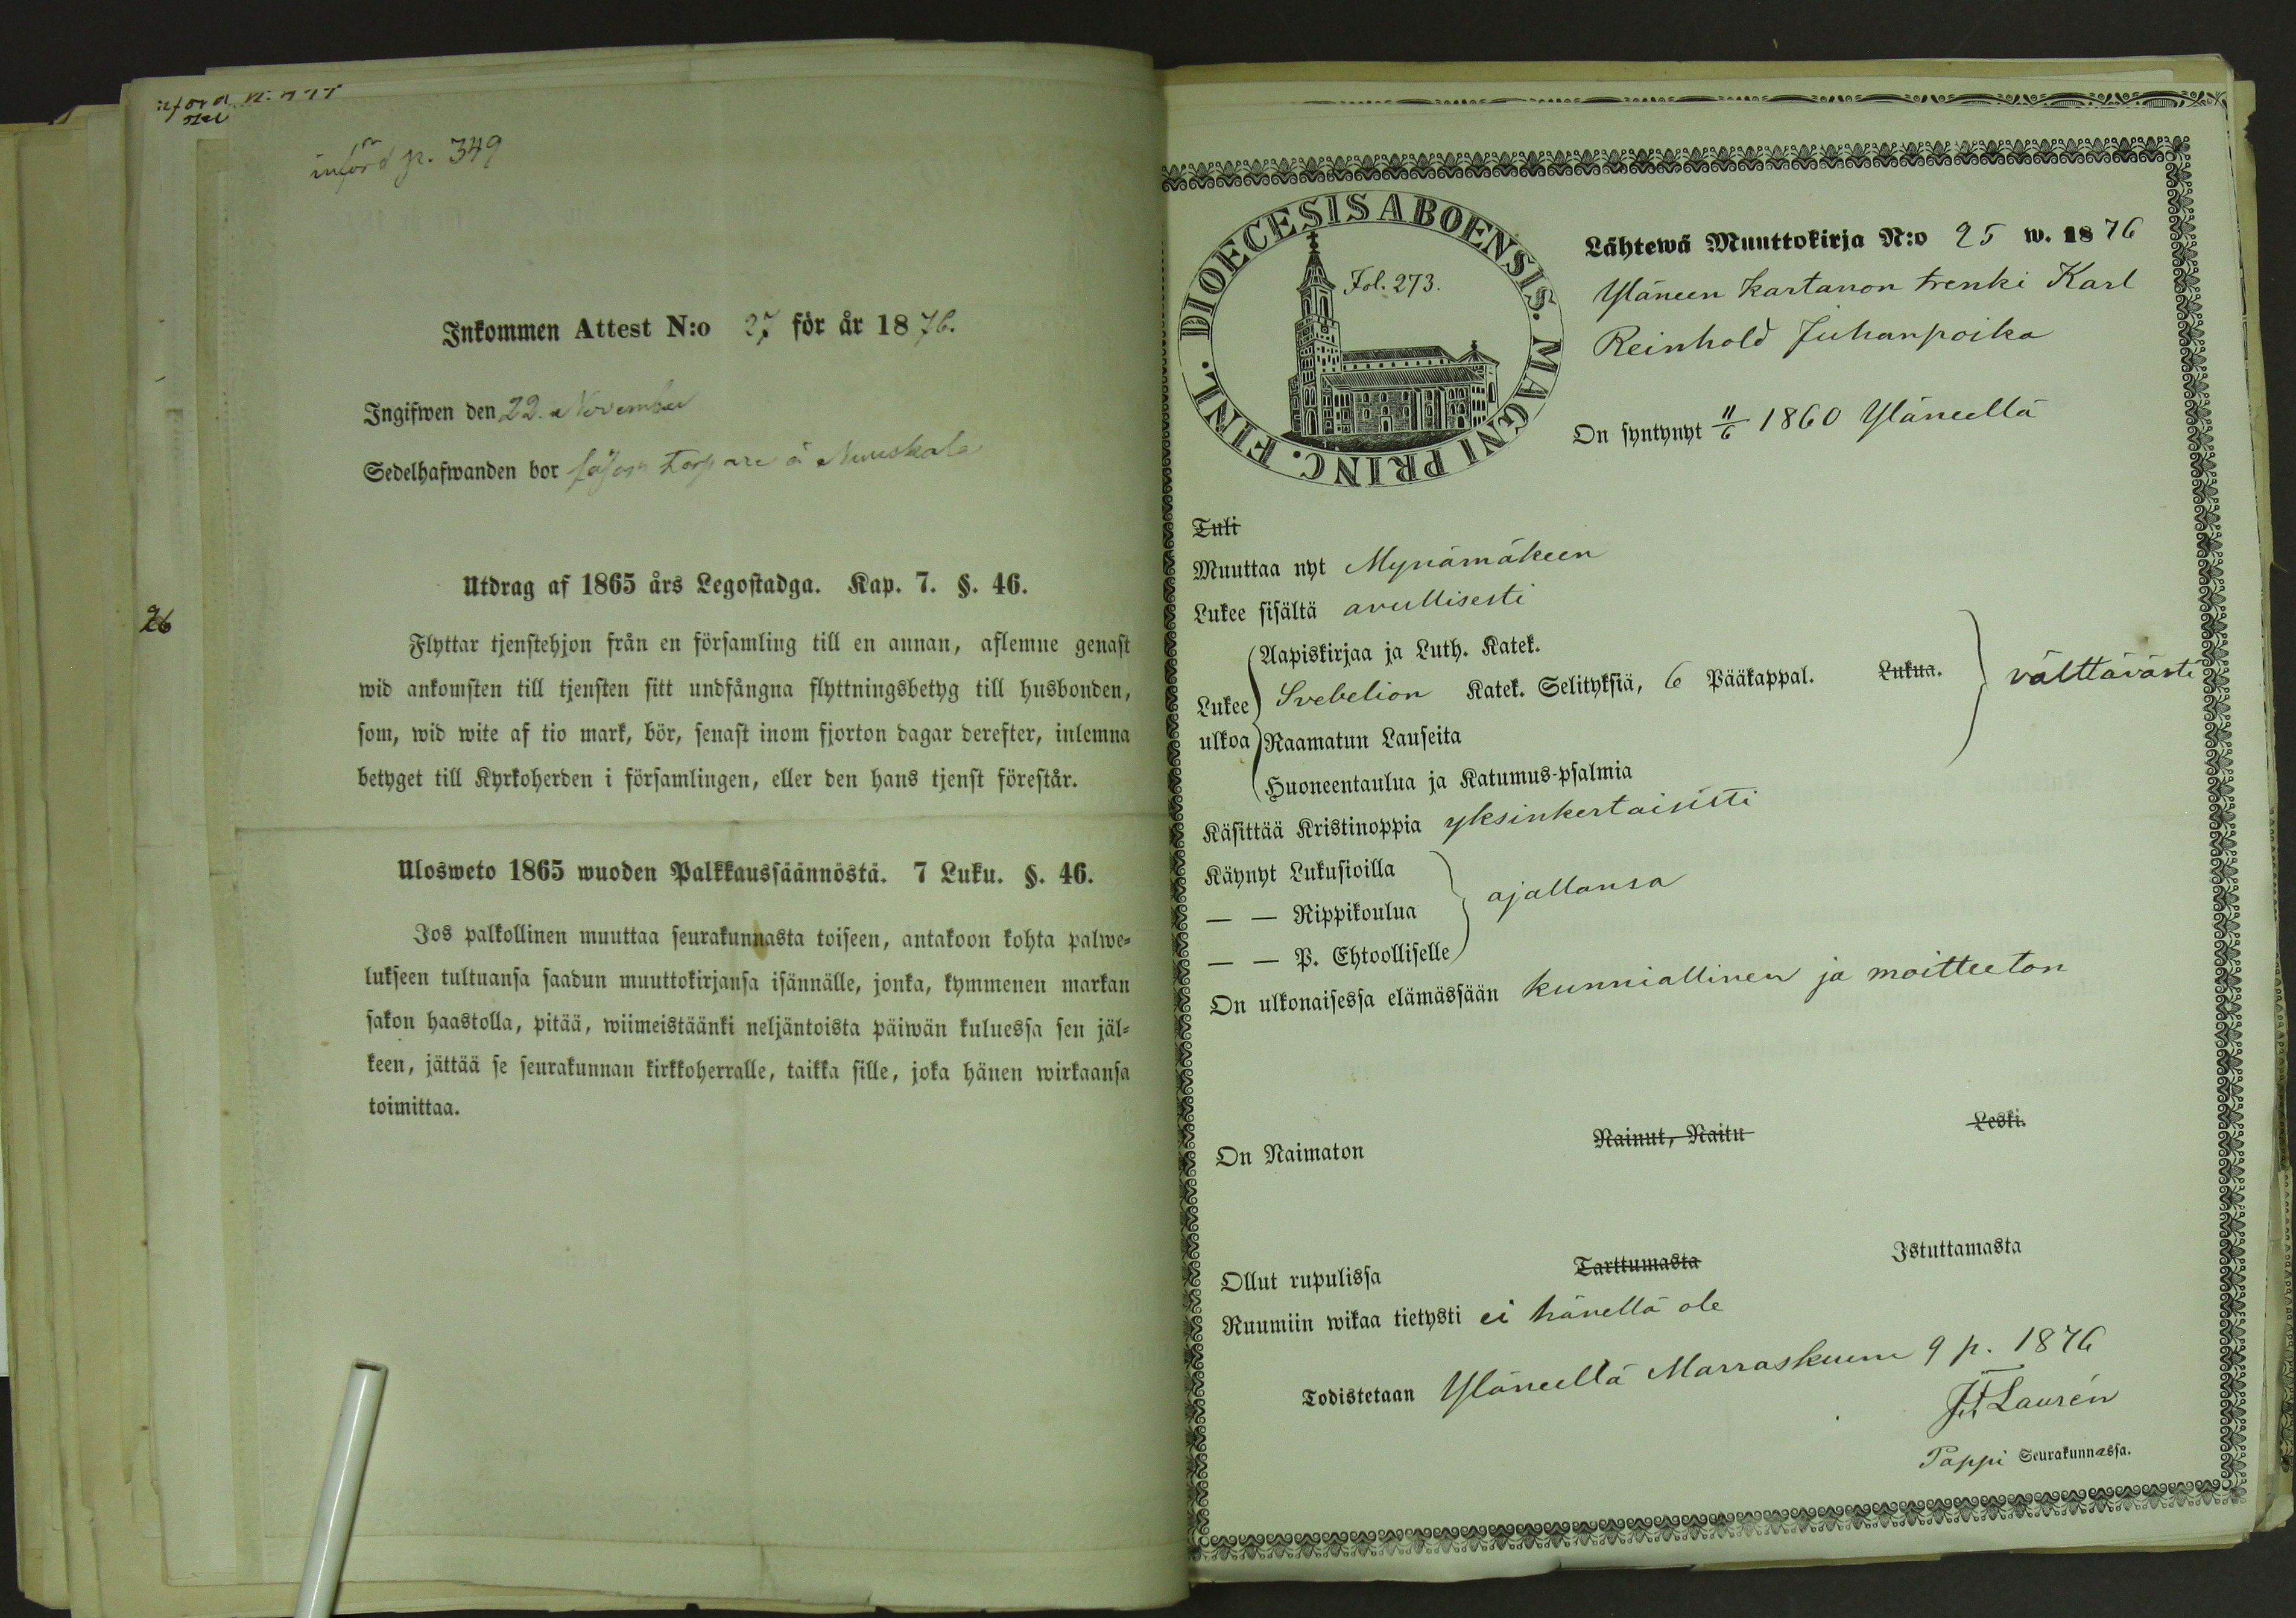 införd p. 349
Inkommen Attest N:o 27 för år 1876.
Ingifwen den 22. November
Sedelhafwanden bor såsom torpare å Nuuskala
26
Utdrag af 1865 års Legostadga. Kap. 7. §. 46.
Flyttar tjenstehjon från en församling till en annan, aflemne genast
wid ankomsten till tjensten sitt undfångna flyttningsbetyg till husbonden,
som, wid wite af tio mark, bör, senast inom fjorton dagar derefter, inlemna
betyget till Kyrkoherden i församlingen, eller den hans tjenst förestår.
Ulosweto 1865 wuoden Palkkaussäännöstä. 7 Luku. §. 46.
Jos palkollinen muuttaa seurakunnasta toiseen, antakoon kohta palwe-
lukseen tultuansa saadun muuttokirjansa isännälle, jonka, kymmenen markan
sakon haastolla, pitää, wiimeistäänki neljäntoista päiwän kuluessa sen jäl-
keen, jättää se seurakunnan kirkkoherralle, taikka sille, joka hänen wirkaansa
toimittaa.
DIOECESIS ABOENSIS. MAGNI PRINC. FINL.
Fol. 273.
Lähtewä Muuttokirja N:o 25 w. 1876
Yläneen kartanon trenki Karl
Reinhold Juhanpoika
On syntynyt 11/6 1860 Yläneellä
Tuli
Muuttaa nyt Mynämäkeen
Lukee sisältä avullisesti
Lukee ulkoa
Aapiskirjaa ja Luth. Katek.
Svebelion Katek. Selityksiä, 6 Pääkappal. Lukua. välttävästi
Raamatun Lauseita
Huoneentaulua ja Katumus-psalmia
Käsittää Kristinoppia yksinkertaisesti
Käynyt Lukusioilla
— — Rippikoulua ajallansa
— — P. Ehtoolliselle
On ulkonaisessa elämässään kunniallinen ja moitteeton
On Naimaton Nainut, Naitu Leski.
Ollut rupulissa Tarttumasta Istuttamasta
Ruumiin wikaa tietysti ei hänellä ole
Todistetaan Yläneellä Marraskuun 9 p. 1876
Laurén
Pappi Seurakunnassa.